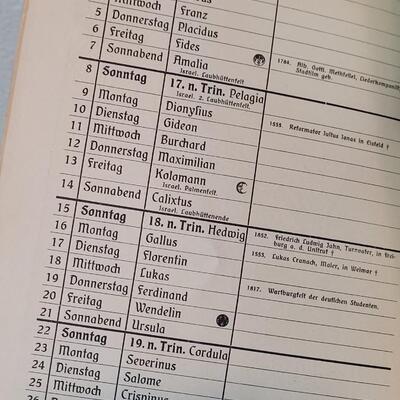 5 Donnerstag Placidus
Franz
6 Freitag Fides
7 Sonnabend Amalia 1784. Alb. Gottl. Methfessel, Liederkomponist,
Stadtilm geb.
8 Sonntag 17. n. Trin. Pelagia
Israel. Laubhüttenfest
9 Montag Dionysius
Israel. 2. Laubhüttenfest.
10 Dienstag Gideon 1555. Reformator Justus Jonas in Eisfeld †
11 Mittwoch Burchard
12 Donnerstag Maximilian
13 Freitag Kolomann
Israel. Palmenfest.
14 Sonnabend Calixtus
Israel. Laubhüttenende
15 Sonntag 18. n. Trin. Hedwig 1852. Friedrich Ludwig Jahn, Turnvater, in Frei-
burg a. d. Unstrut †
16 Montag Gallus 1553. Lukas Cranach, Maler, in Weimar †
17 Dienstag Florentin
18 Mittwoch Lukas 1817. Wartburgfest der deutschen Studenten.
19 Donnerstag Ferdinand
20 Freitag Wendelin
21 Sonnabend Ursula
22 Sonntag 19. n. Trin. Cordula
23 Montag Severinus
24 Dienstag Salome
25 Mittwoch Crispinus
26